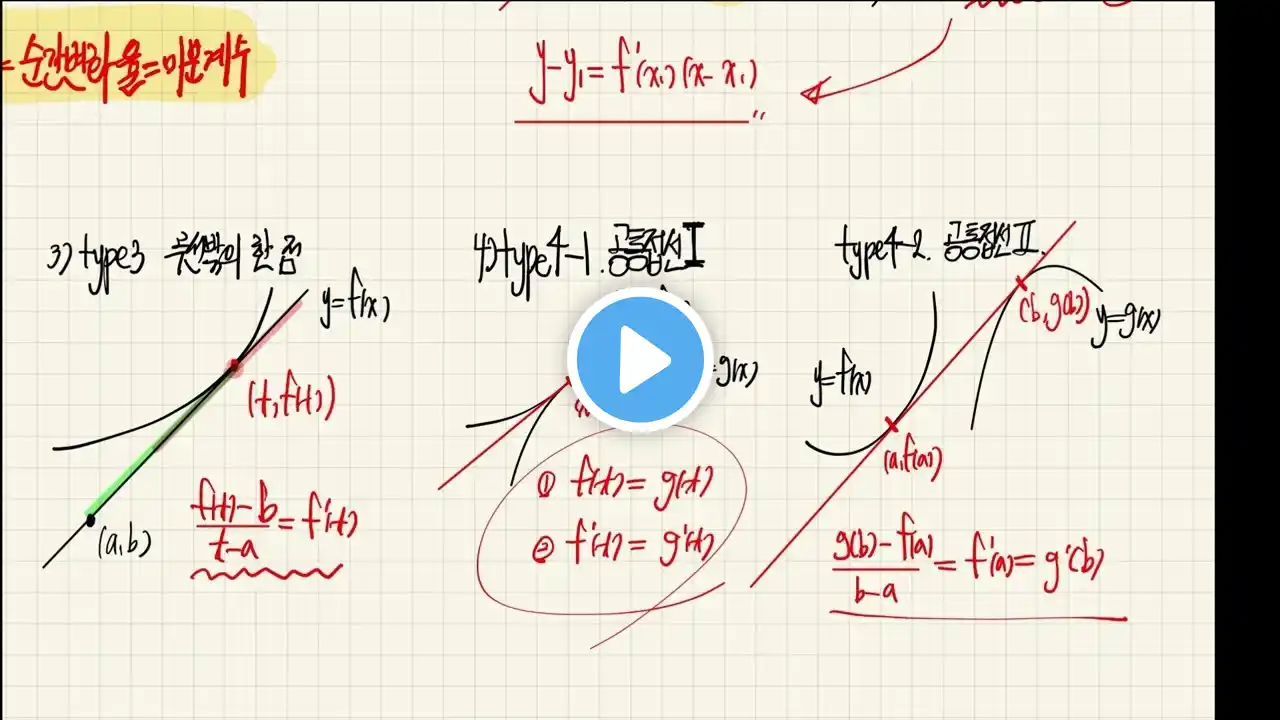 = 순간변화율 = 미분계수
y-y₁ = f'(x₁)(x-x₁)
3) type3 곡선밖의 한 점
y=f(x)
(t, f(t))
(a, b)
f(t)-b
t-a
= f'(t)
4) type4-1. 공통접선 I
=g(x)
① f(t) = g(t)
② f'(t) = g'(t)
type4-2. 공통접선 II.
(b, g(b))
y=g(x)
y=f(x)
(a, f(a))
g(b)-f(a)
b-a
= f'(a) = g'(b)